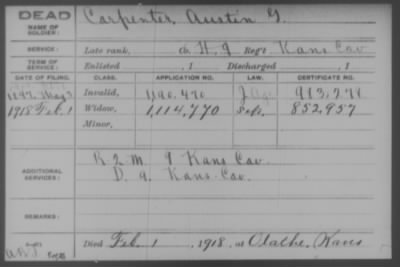 DEAD
NAME OF SOLDIER:
Carpenter, Austin G.
SERVICE:
Late rank, Co. H, 9 Reg't Kans Cav
TERM OF SERVICE:
Enlisted , 1 Discharged , 1
DATE OF FILING. CLASS. APPLICATION NO. LAW. CERTIFICATE NO.
1892 May 3 Invalid,
1918 Feb. 1 Widow, 1,114,770 852,957
Minor,
ADDITIONAL SERVICES:
R 2 M 9 Kans Cav.
D. 9. Kans. Cav.
REMARKS:
Died Feb. 1 , 1918, at Olathe, Kans